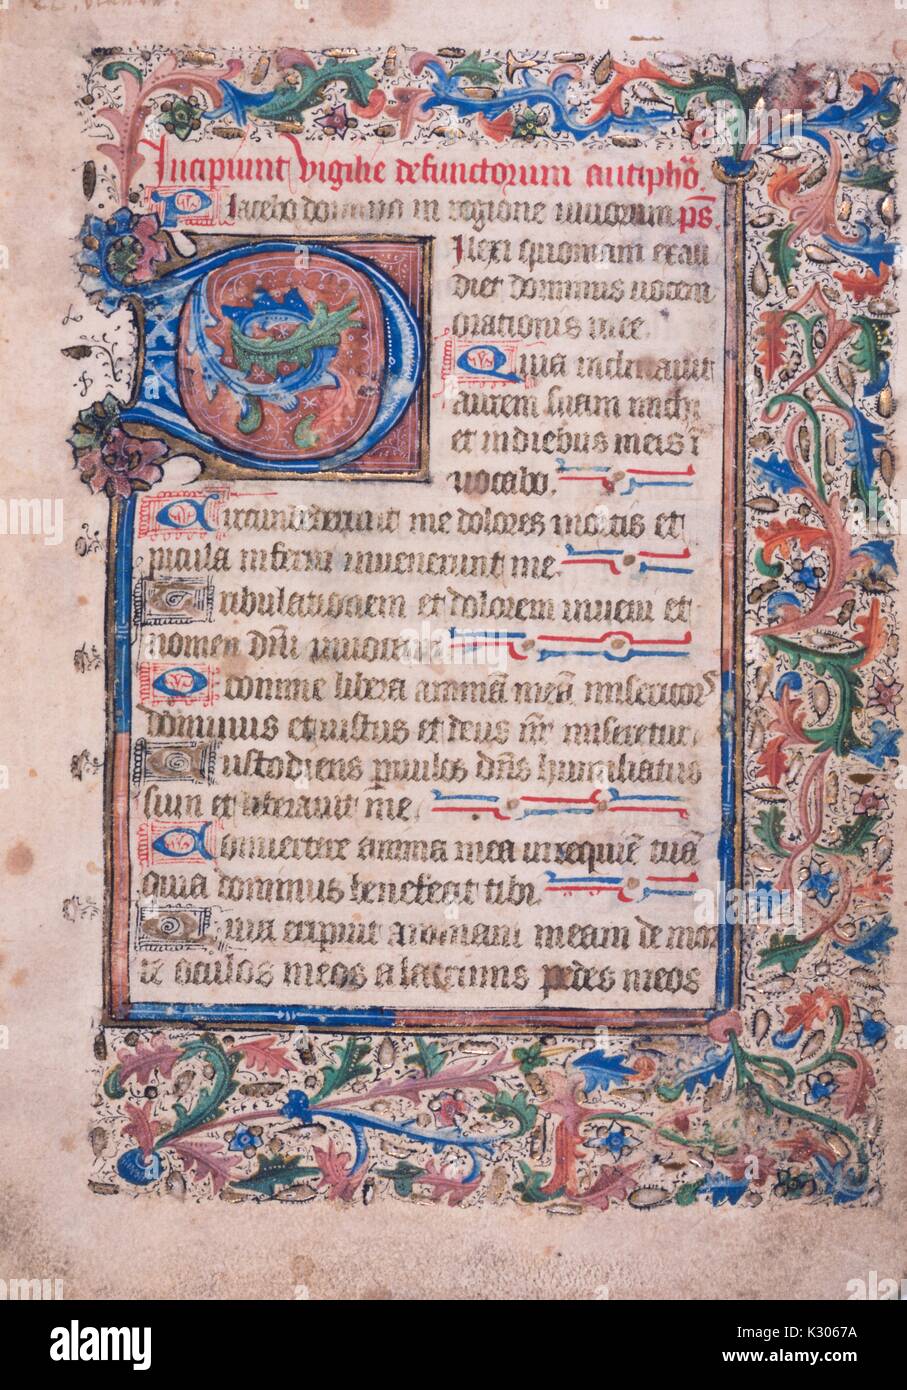 Incipiunt vigilie defunctorum antiphoˉ.
Placebo domino in regione vivorum pš.
Dilexi quoniam exau
diet dominus vocem
orationis mee.
Quia inclinavit
aurem suam michi
et in diebus meis ī
vocabo.
Circundederunt me dolores mortis et
picula inferni invenerunt me.
Tribulationem et dolorem inveni et
nomen dn̄i invocavi
O domine libera animā meā misericors
dominus et iustus et deus nr̄ miseretur
Custodiens pvulos dn̄s humiliatus
sum et liberavit me.
Convertere anima mea in requiē tuā
quia dominus benefecit tibi.
Quia eripuit animam meam de mor
te oculos meos a lacrimis pedes meos
alamy stock photo
a
alamy
K3067A
www.alamy.com